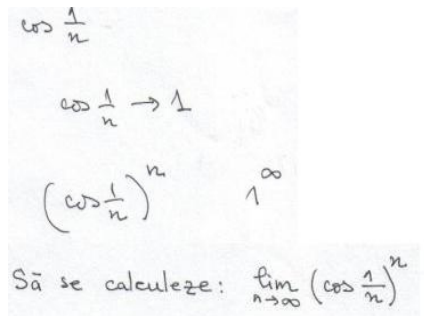 cos 1/n
cos 1/n → 1
(cos 1/n)^n 1^∞
Să se calculeze: lim n→∞ (cos 1/n)^n